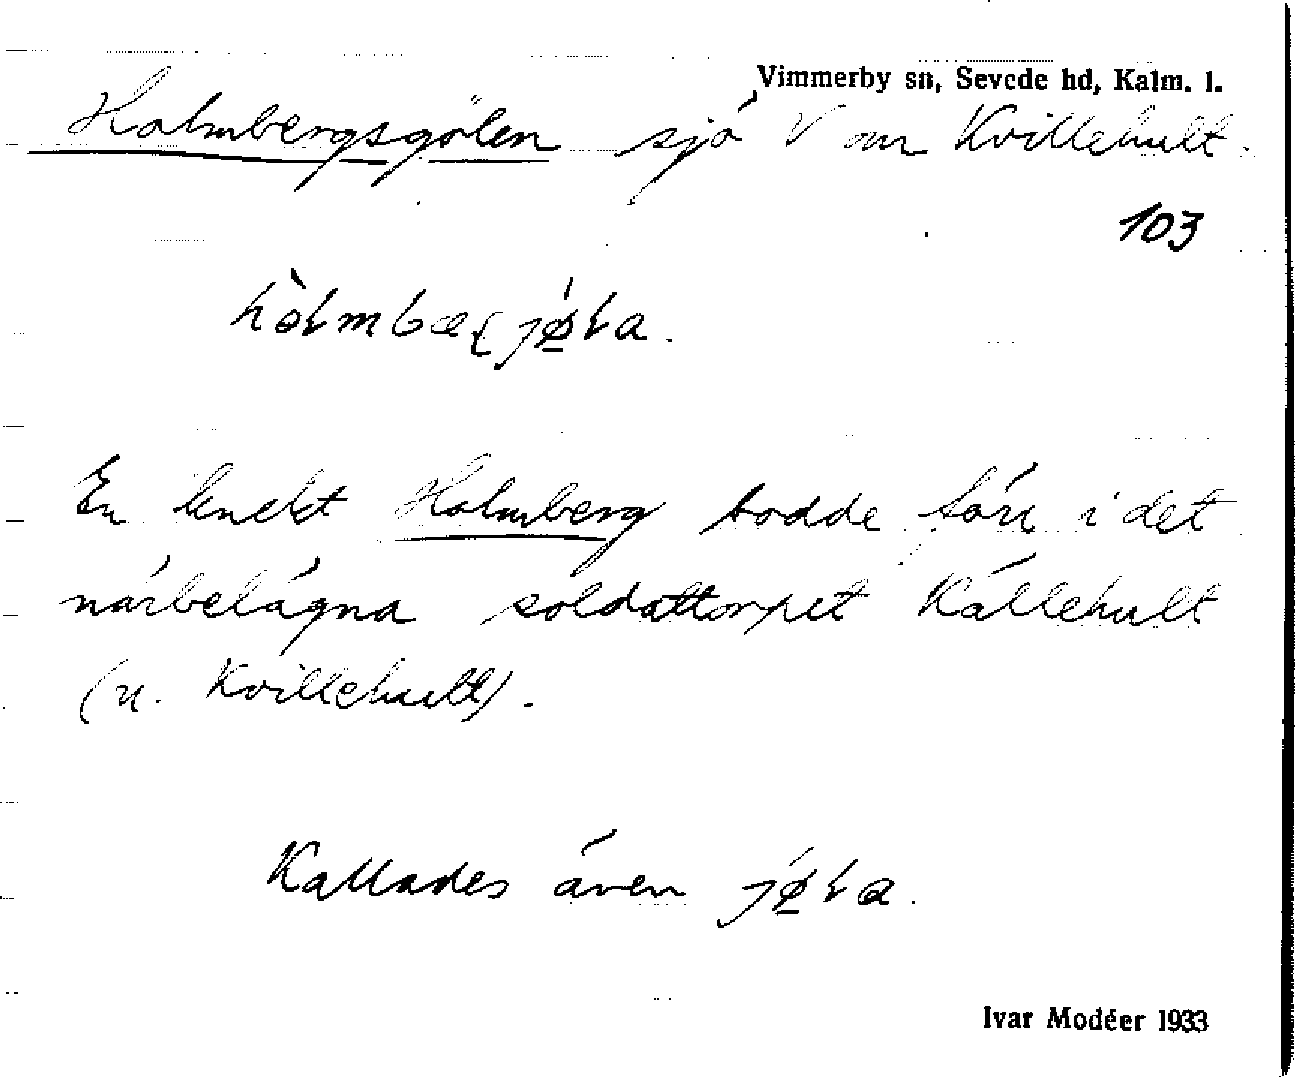 Vimmerby sn, Sevede hd, Kalm. l.
Holmbergsgölen sjö V om Kvillehult.
103
En knekt Holmberg bodde förr i det
närbelägna soldattorpet Källehult
(u. Kvillehult).
Kallades även
Ivar Modéer 1933